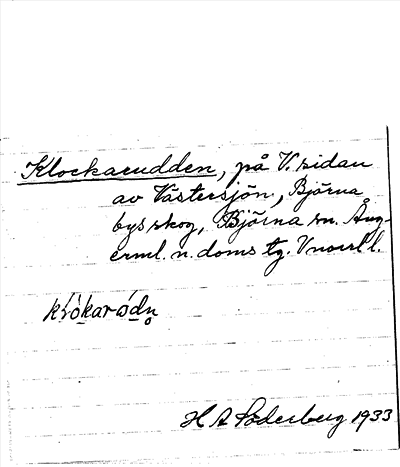 Klockarudden, på V. sidan
av Västersjön, Björna
bys skog, Björna sn. Ång-
erml. n. doms tg. Vnorrl l.
kló̀karòdn̥
H A Söderberg 1933